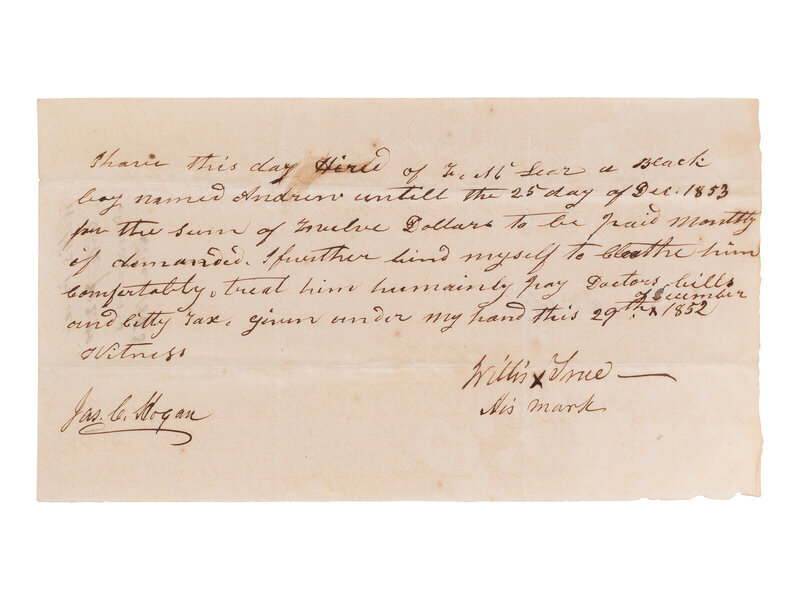 I have this day Hired of F. Mc Lear a Black
boy named Andrew untill the 25 day of Dec. 1853
for the sum of Twelve Dollars to be paid Monthly
if demanded. I further bind myself to Cloathe him
Comfortably, treat him humainly pay Doctors bills
and Citty Tax. Given under my hand this 29th of December 1852
Witness
Willis X True
His mark
Jas. C. Hogan